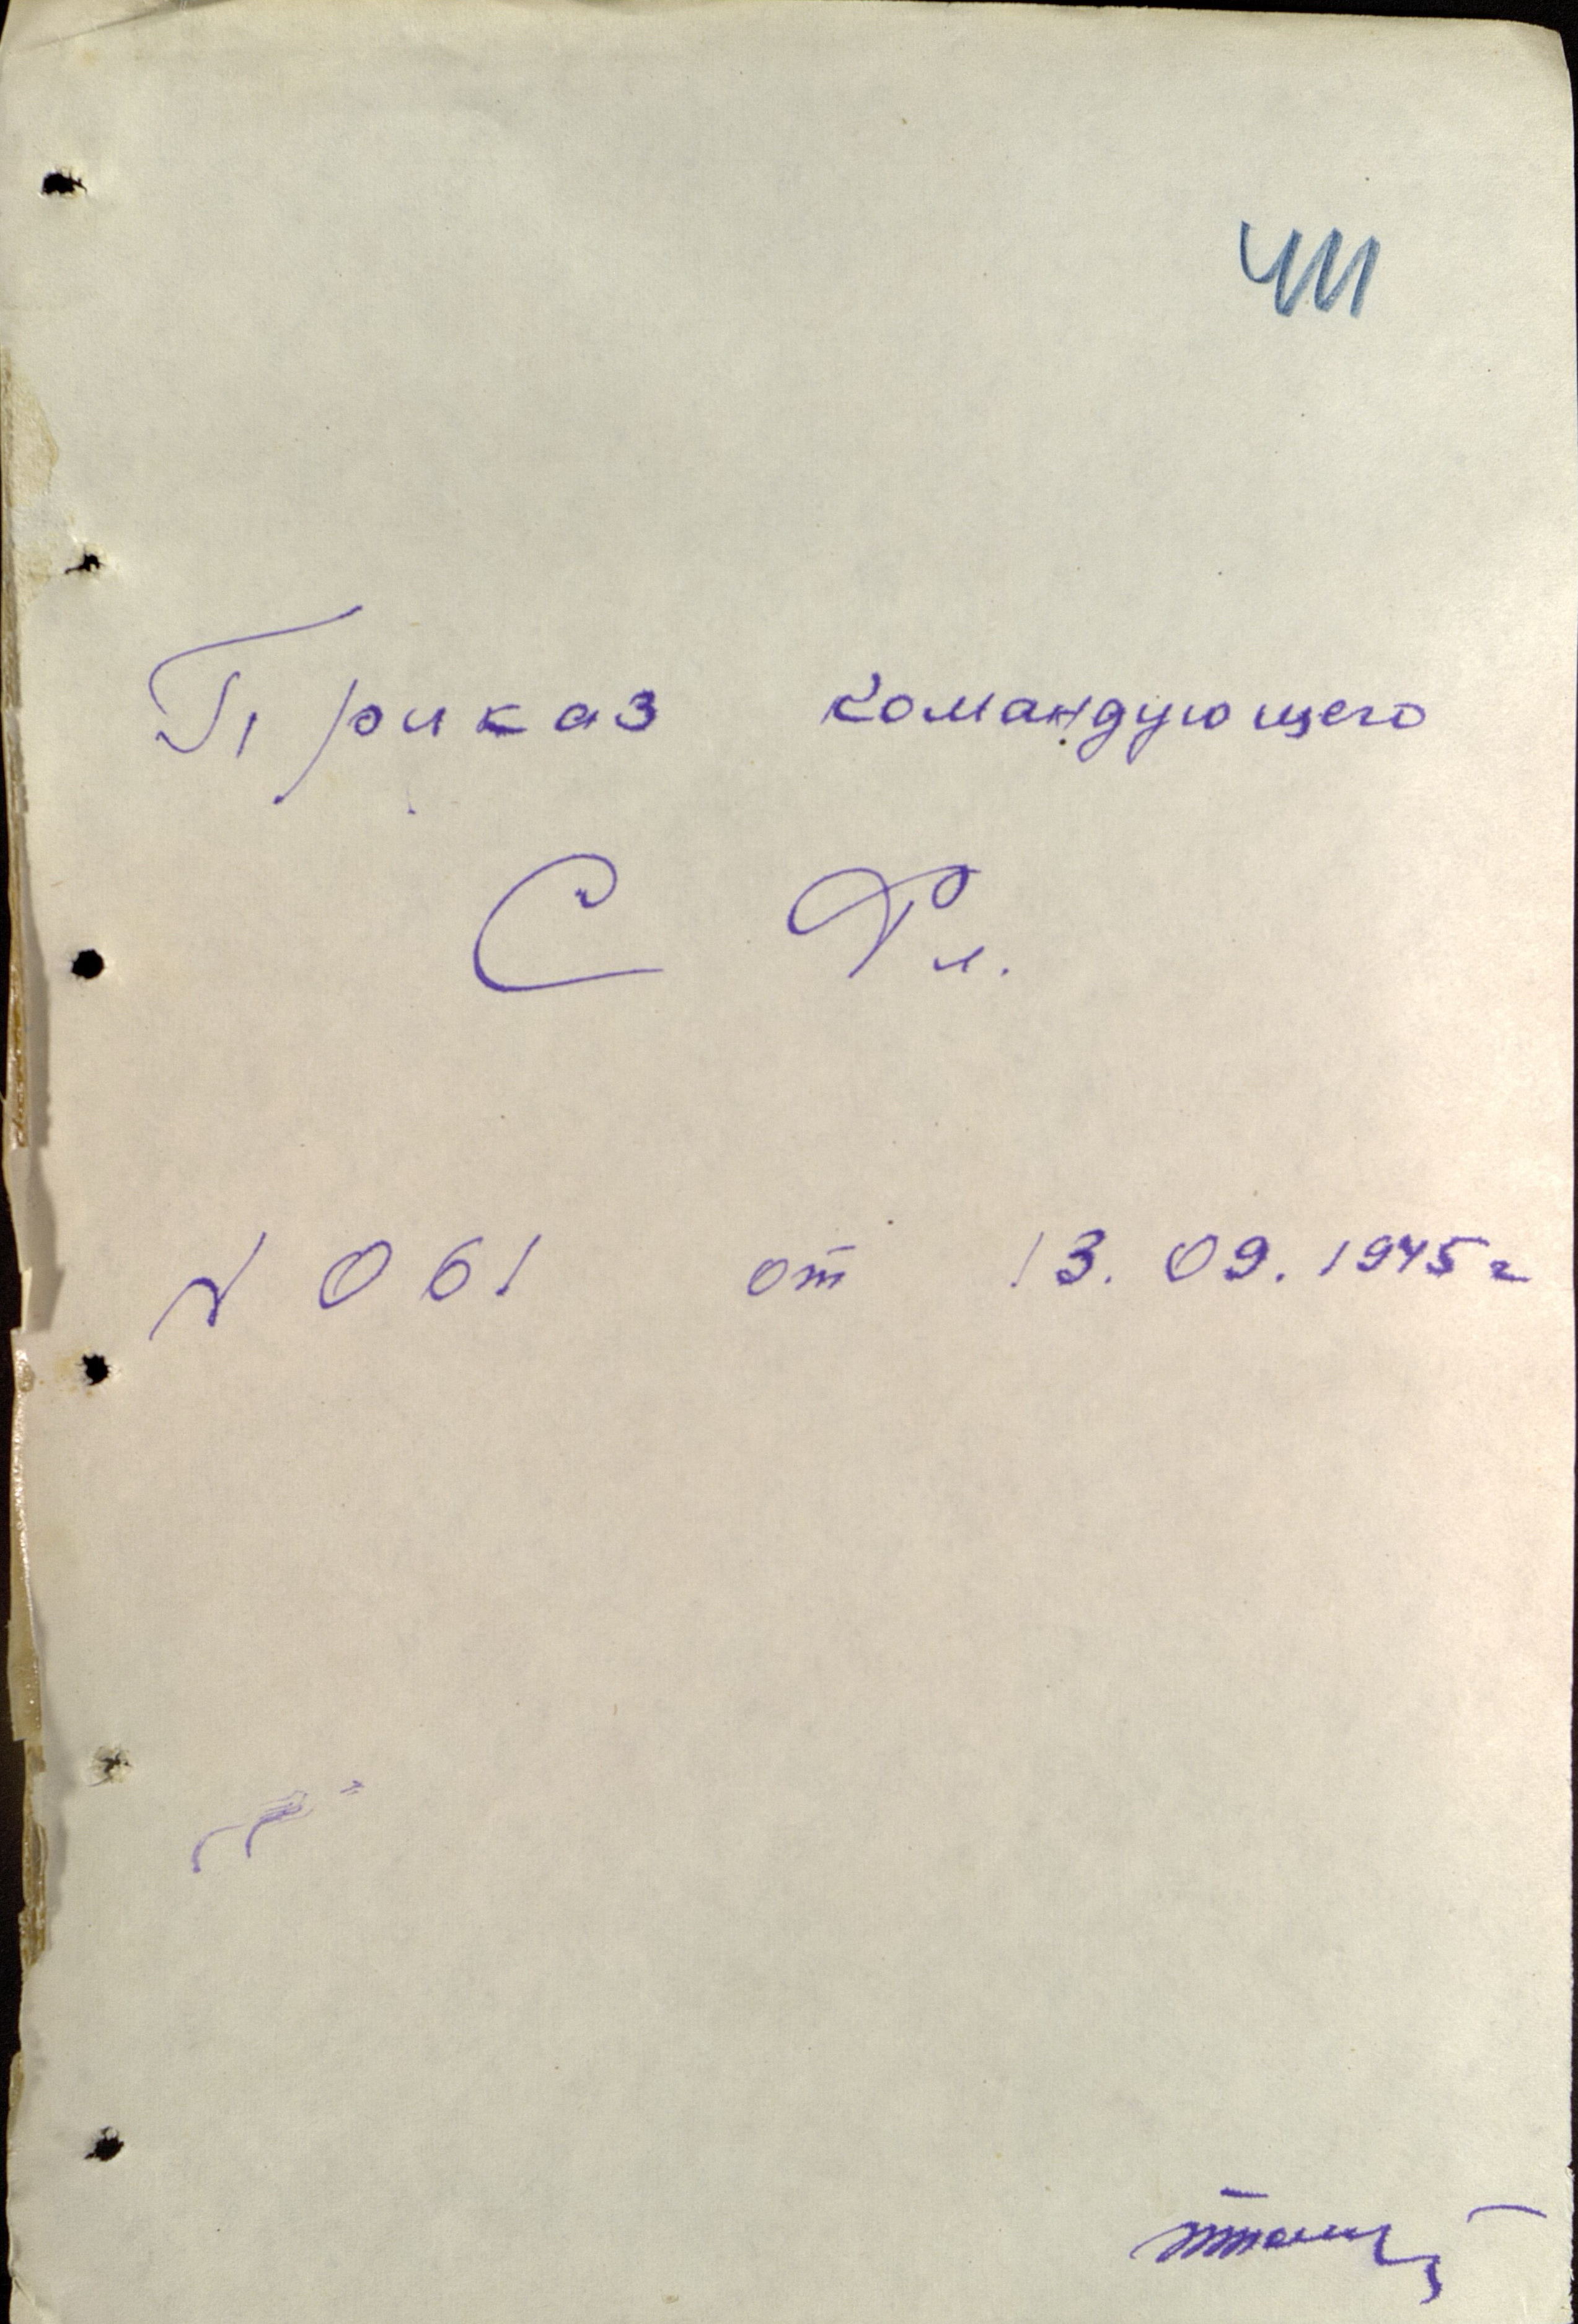 411
Приказ командующего
С Фл.
N 061 от 13.09.1945 г